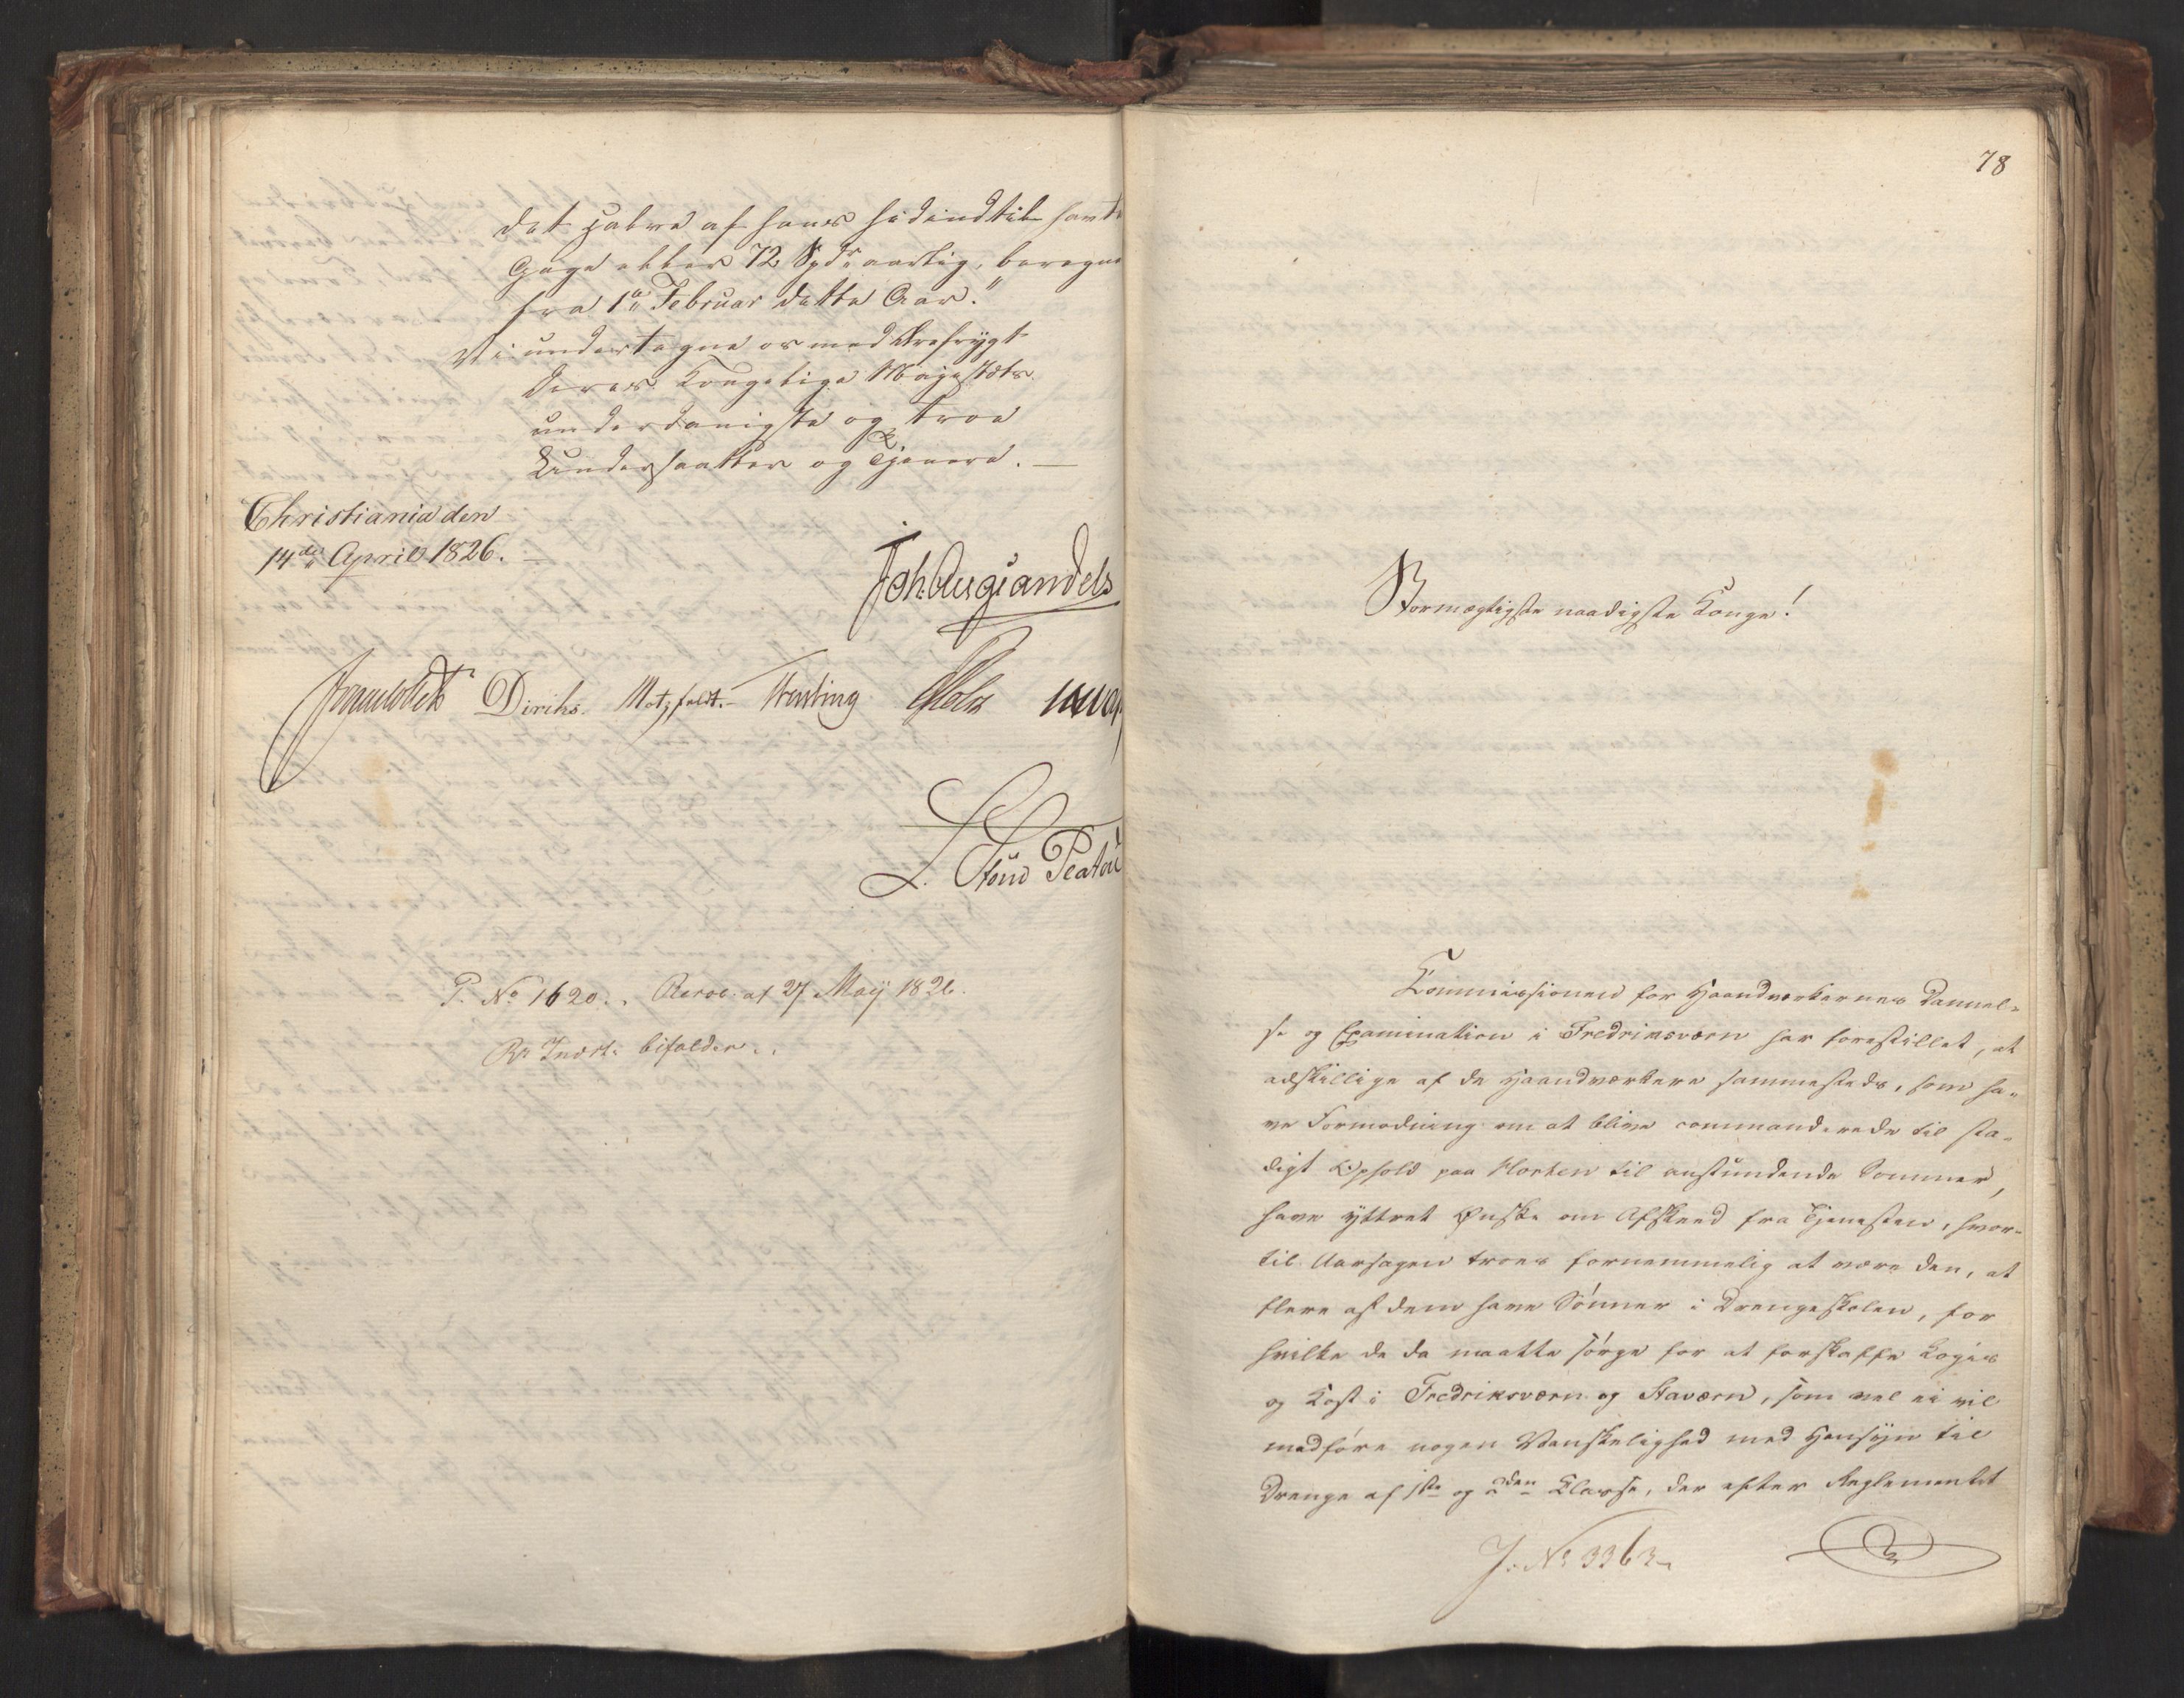 det halve af hans hidindtil havte
Gage eller 72 Spdr aarlig, beregne
fra 1ste Februar dette Aar."
Vi undertegne os med Ærefrygt
Deres Kongelige Majestæts
underdanigste og troe
Undersaatter og Tjenere. —
Christiania den
14de April 1826. —
Joh. Aug Sandels
Diriks Motzfeldt. Treschow Holst
P. No 1620. Resol. af 27 Maij 1826.
Rs Indst. bifaldes.
78
Stormægtigste naadigste Konge!
Commissionen for Haandværkernes Dannel-
se og Examination i Fredriksværn har forestillet, at
adskillige af de Haandværkere sammesteds, som ha-
ve Formodning om at blive commanderede til sta-
digt Ophold paa Horten til anstundende Sommer,
have yttret Ønske om Afskeed fra Tjenesten, hvor-
til Aarsagen troes fornemmelig at være den, at
flere af dem have Sønner i Drengeskolen, for
hvilke de da maatte sørge for at forskaffe Logis
og Kost i Fredriksværn og Staværn, som vel ei vil
medføre nogen Vanskelighed med Hensyn til
Drenge af 1ste og 2den Classe, der efter Reglementet
J. No 3363